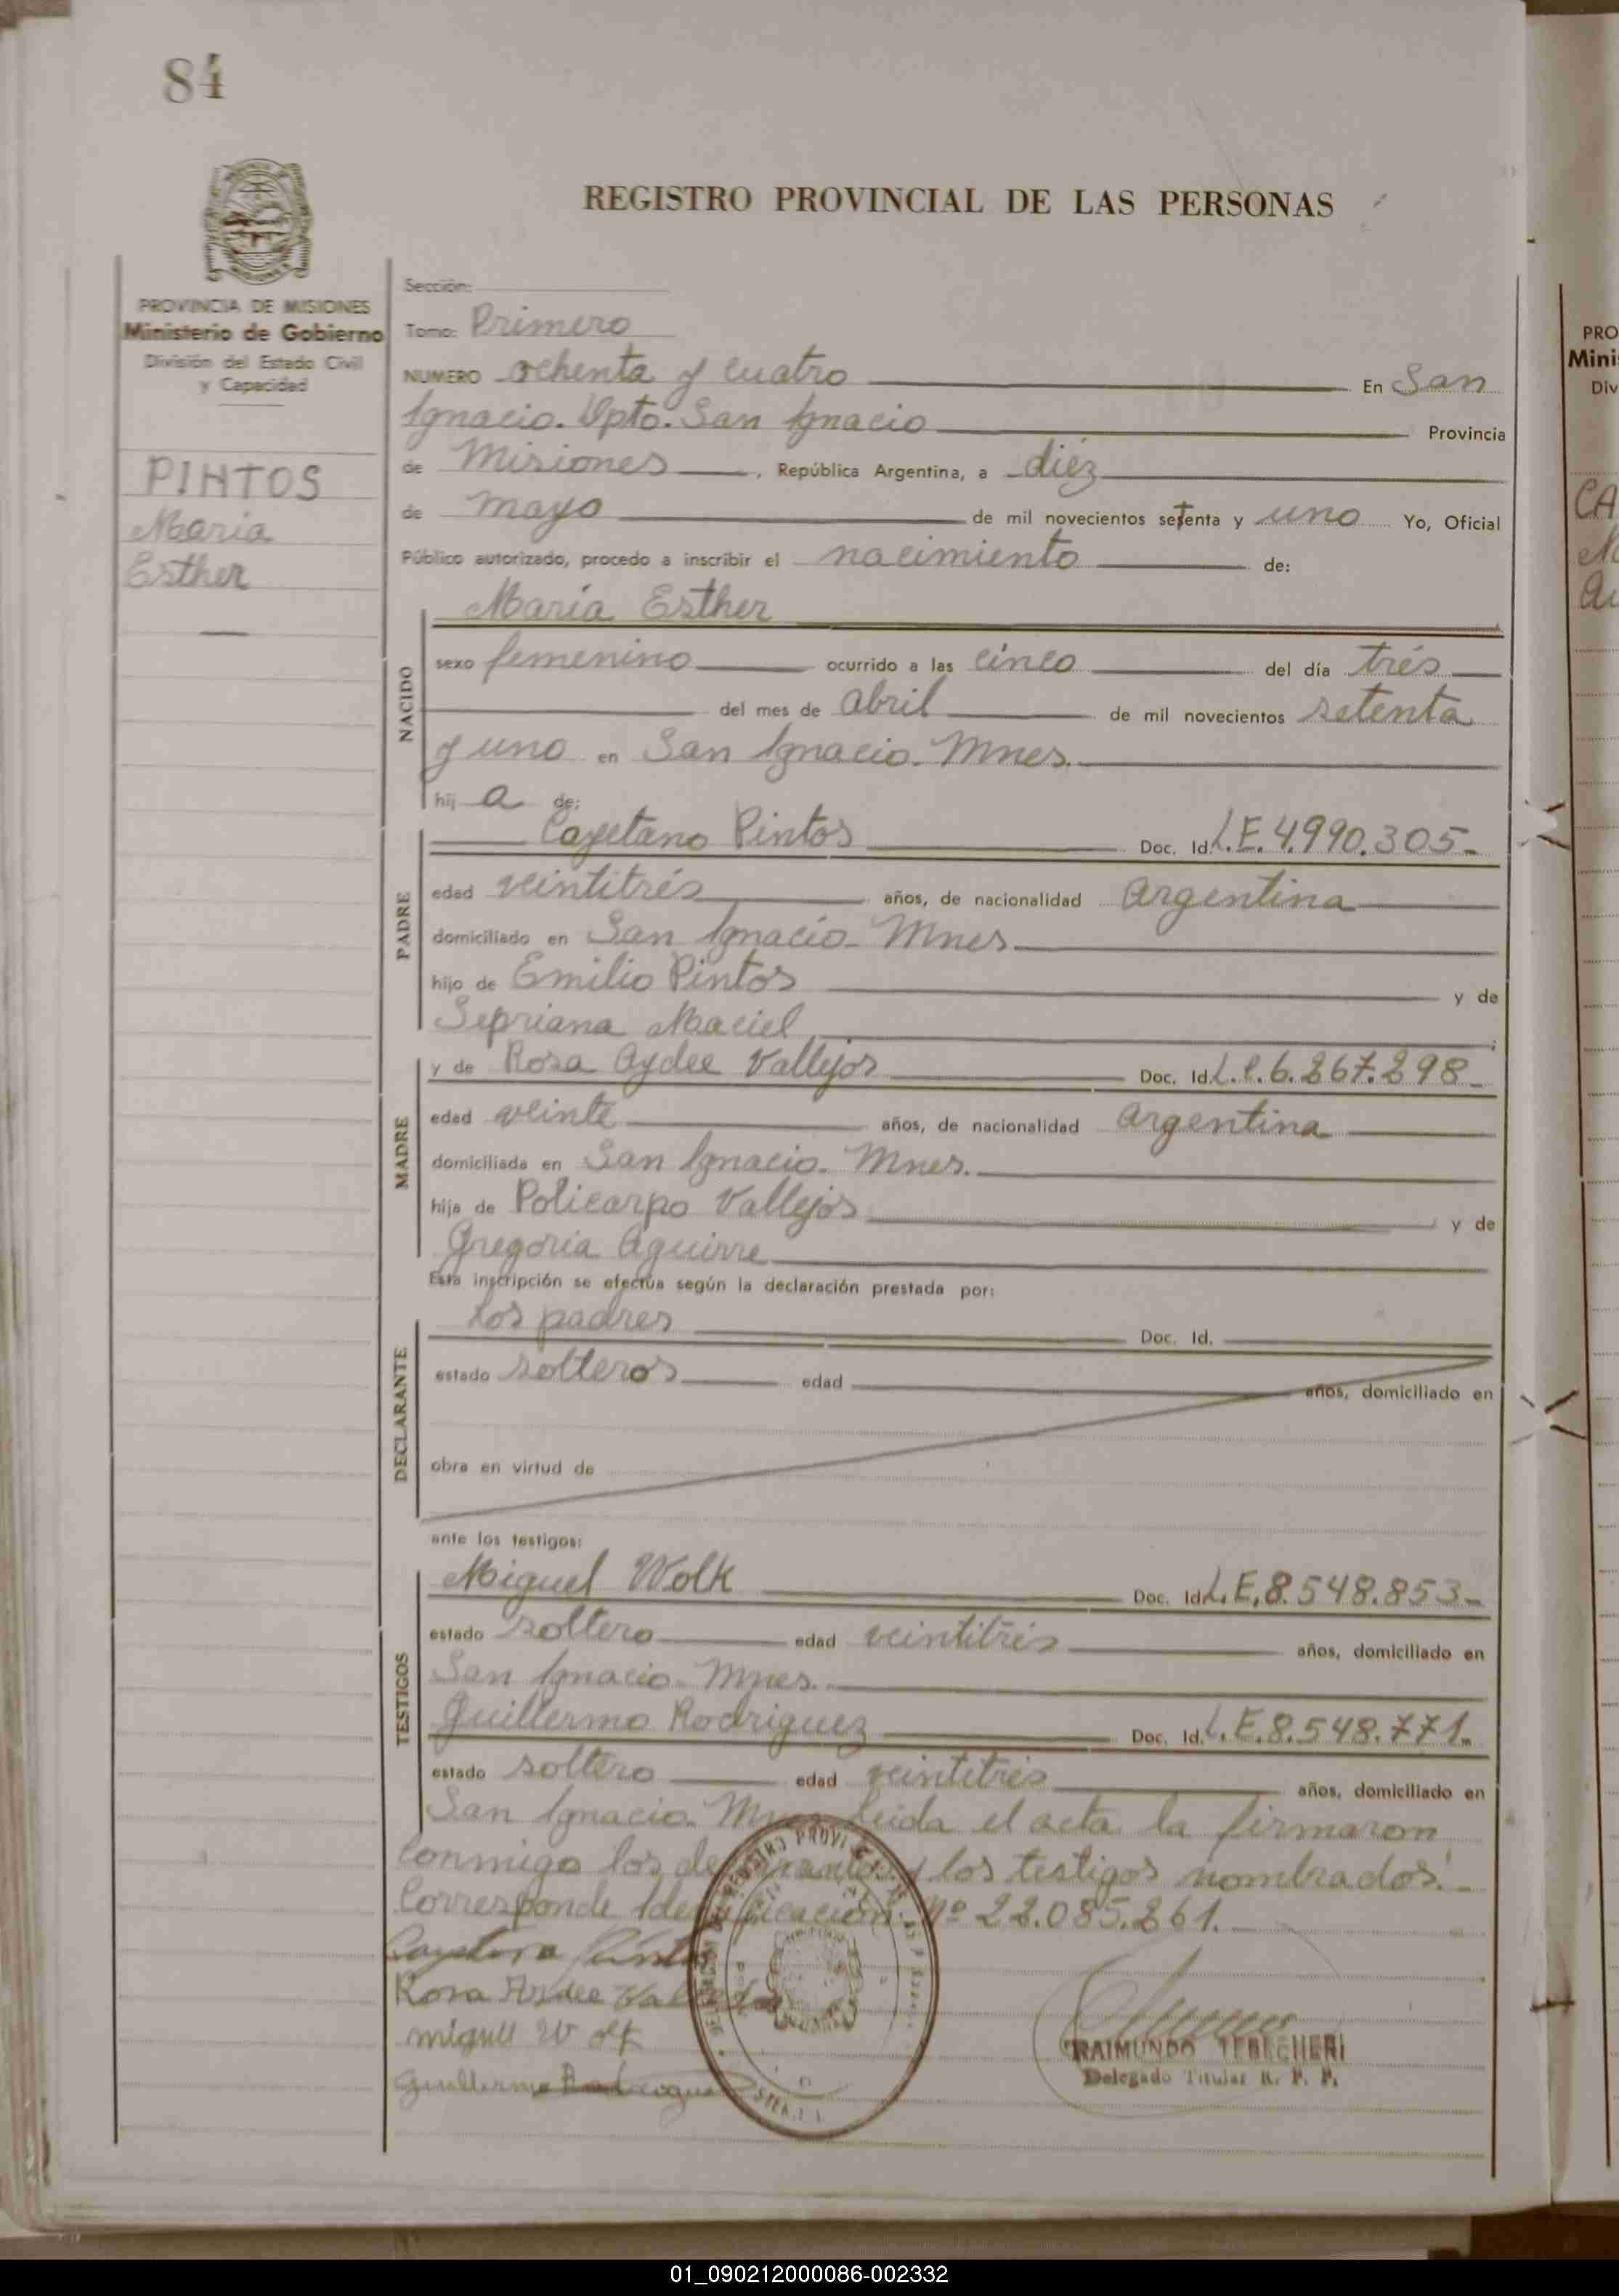 84
REGISTRO PROVINCIAL DE LAS PERSONAS
PROVINCIA DE MISIONES
Ministerio de Gobierno
División del Estado Civil
y Capacidad
PINTOS
María
Esther
Sección:
Tomo: Primero
NUMERO ochenta y cuatro En San
Ignacio. Dpto. San Ignacio Provincia
de Misiones, República Argentina, a diéz
de mayo de mil novecientos setenta y uno Yo, Oficial
Público autorizado, procedo a inscribir el nacimiento de:
NACIDO
María Esther
sexo femenino ocurrido a las cinco del día trés
del mes de abril de mil novecientos setenta
y uno en San Ignacio. Mnes.
hij a de:
PADRE
Cayetano Pintos Doc. Id. L.E. 4.990.305-
edad veintitrés años, de nacionalidad Argentina
domiciliado en San Ignacio- Mnes.
hijo de Emilio Pintos y de
Sepriana Maciel;
MADRE
y de Rosa Aydee Vallejos Doc. Id. L.C. 6.267.298-
edad veinte años, de nacionalidad Argentina
domiciliada en San Ignacio. Mnes.
hija de Policarpo Vallejos y de
Gregoria Aguirre
Esta inscripción se efectúa según la declaración prestada por:
DECLARANTE
Los padres Doc. Id.
estado solteros edad años, domiciliado en
obra en virtud de
ante los testigos:
TESTIGOS
Miguel Wolk Doc. Id. L.E. 8.548.853-
estado soltero edad veintitrés años, domiciliado en
San Ignacio- Mnes.
Guillermo Rodriguez Doc. Id. L.E. 8.548.771.
estado soltero edad veintitrés años, domiciliado en
San Ignacio. Mnes Leida el acta la firmaron
conmigo los declarantes y los testigos nombrados.-
Corresponde Identificación Nº 22.085.261.
Rosa Aydee Vallejos
miguel Wolk
Guillermo Rodriguez
RAIMUNDO TEBECHERI
Delegado Titular R. P. P.
PRO
Mini
Div
CA
01_090212000086-002332